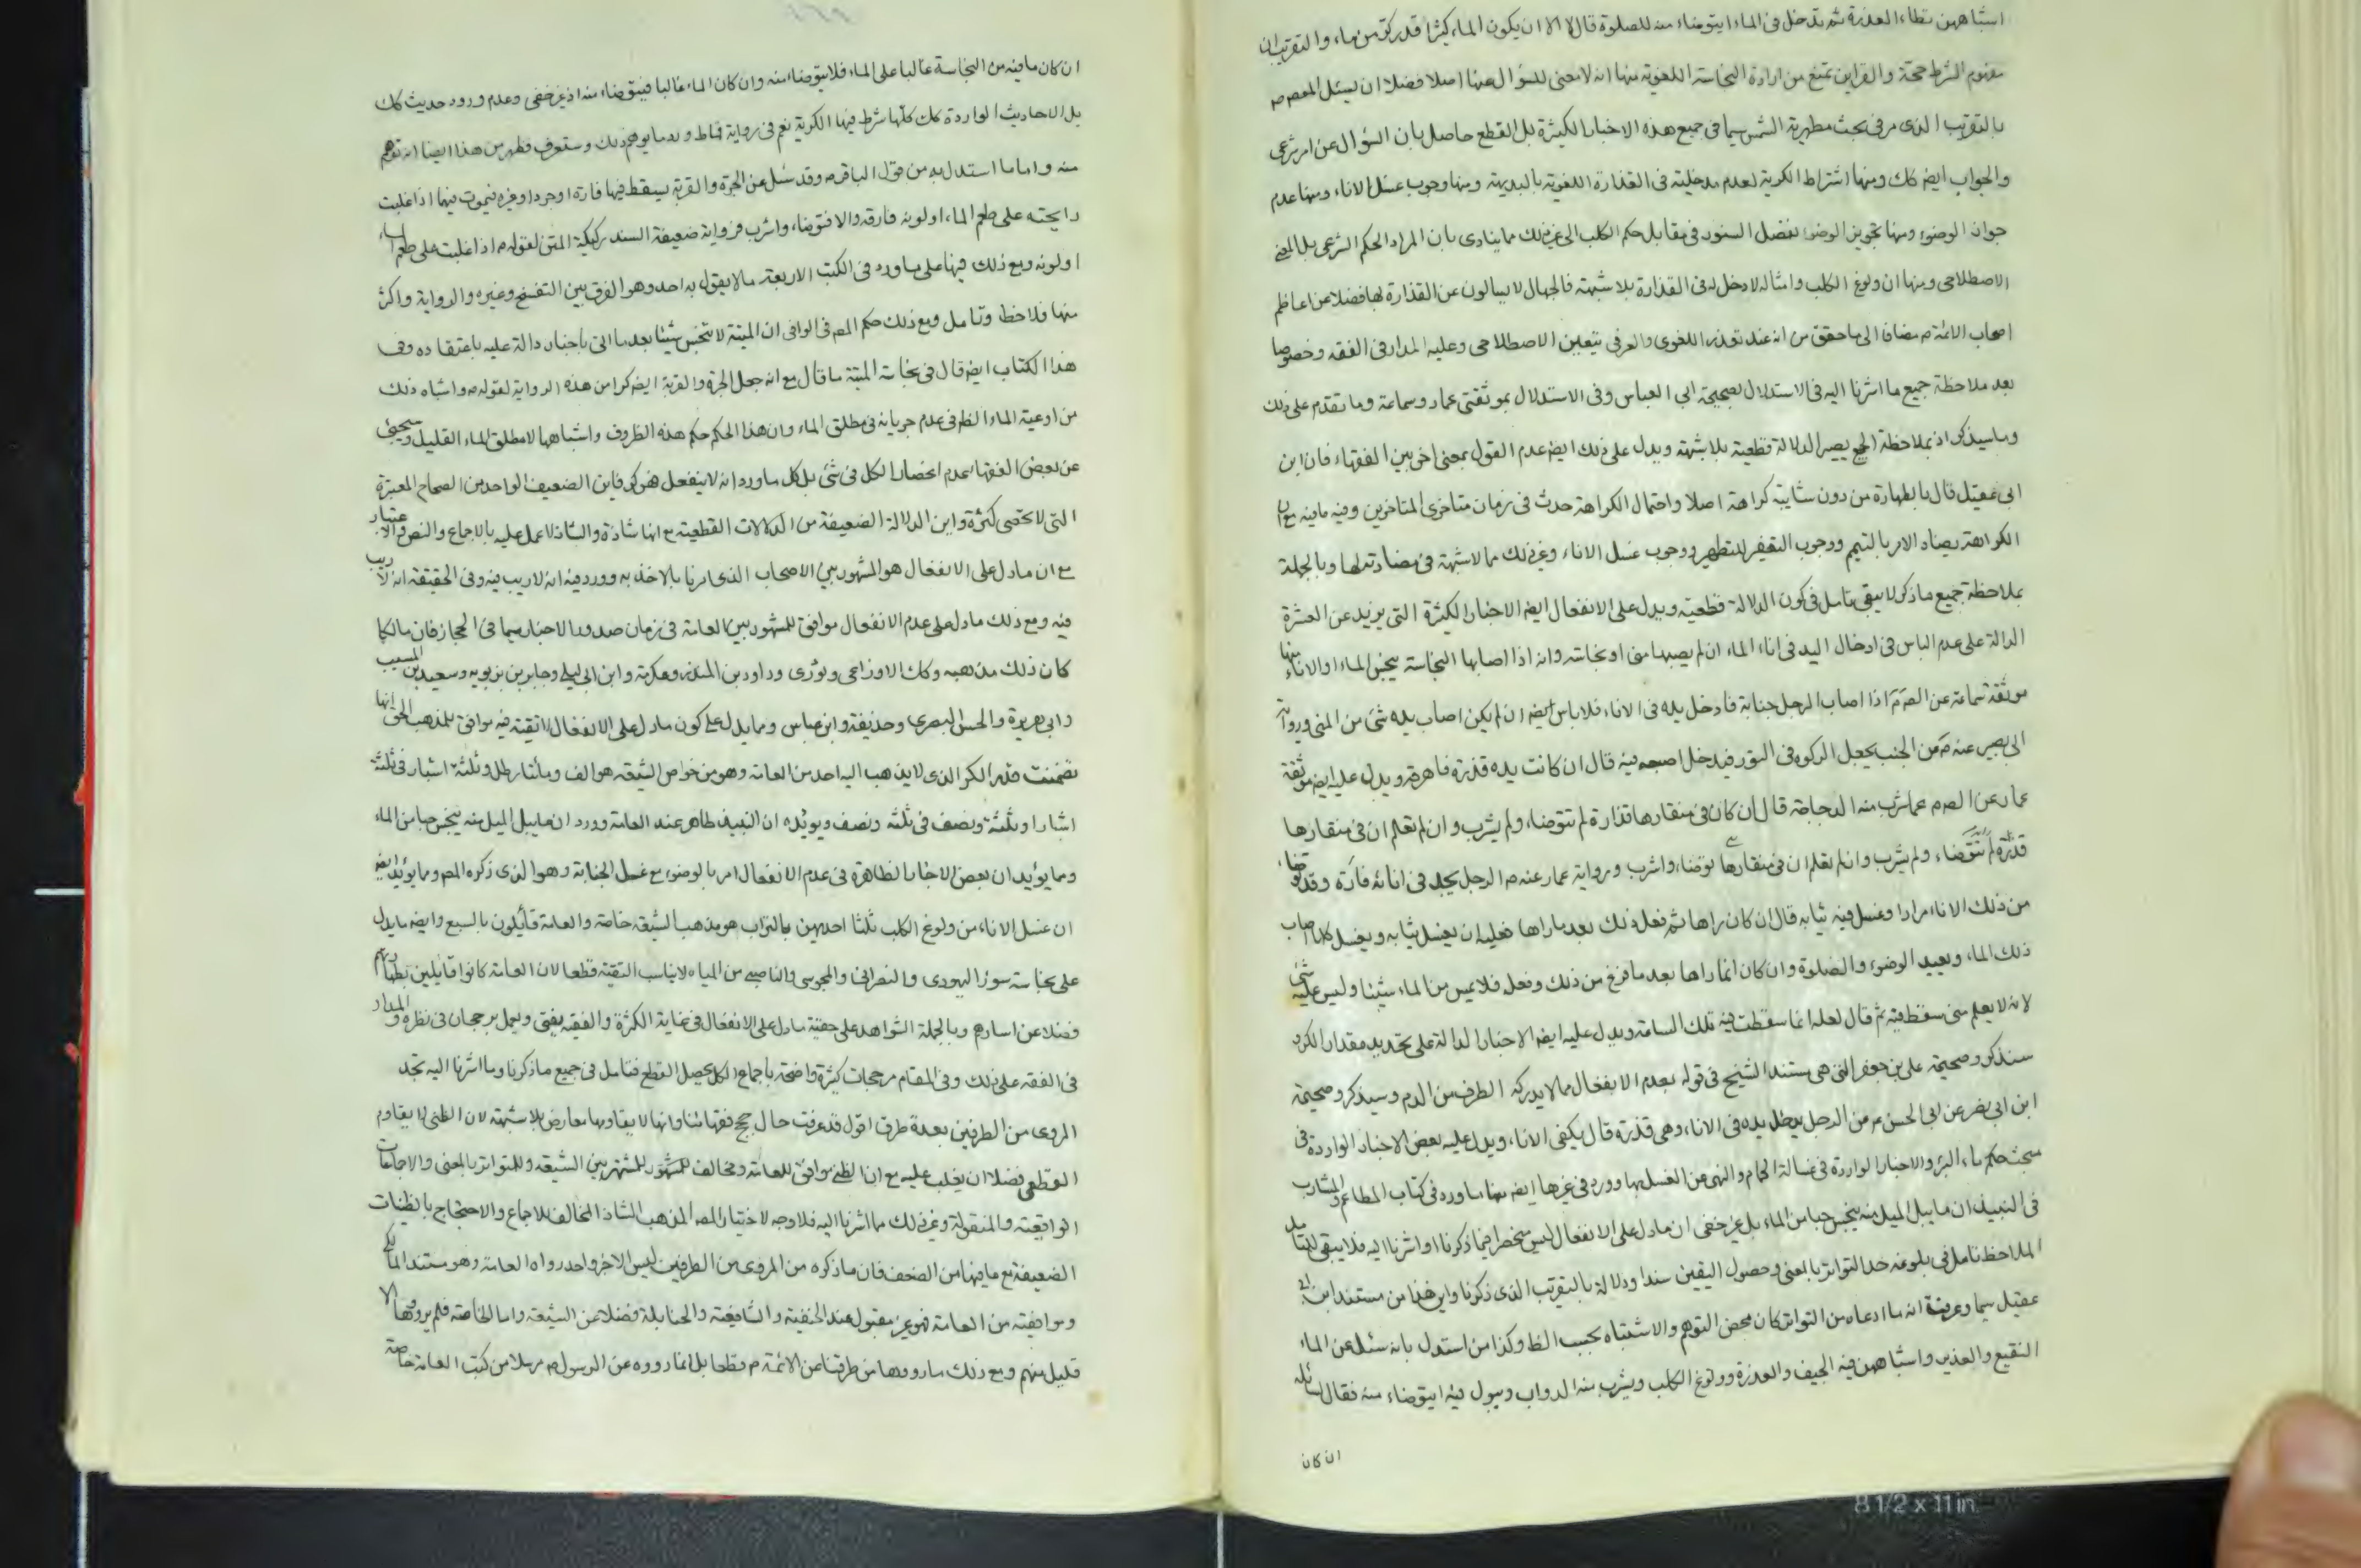 اشباههن تطاء العذرة ثم تدخل فى الماء ايتوضاء منه للصلوة قال لا الا ان يكون الماء كثيرا قدر كر من ماء والتقريب ان
مفهوم الشرط حجة والقراين تمنع من ارادة النجاسة اللغوية منها انه لا معنى للسؤال عنها اصلا فضلا ان يسئل المعصوم
بالتقريب الذى مر فى بحث مطهرية الشمس سيما فى جميع هذه الاخبار الكثيرة بل القطع حاصل بان السؤال عن امر شرعى
والجواب ايضا كك ومنها اشتراط الكرية لعدم مدخليته فى القذارة اللغوية بالبديهة ومنها وجوب غسل الاناء ومنها عدم
جواز الوضوء ومنها تجويز الوضوء بفضل السنور فى مقابل حكم الكلب الى غير ذلك مما ينادى بان المراد الحكم الشرعى بل المعنى
الاصطلاحى ومنها ان ولوغ الكلب وامثاله لا دخل له فى القذارة بلا شبهة فالجهال لا يسالون عن القذارة لها فضلا عن اعاظم
اصحاب الائمة م مضافا الى ما حقق من انه عند تعذر اللغوى والعرفى يتعين الاصطلاحى وعليه المدار فى الفقه وخصوصا
بعد ملاحظة جميع ما اشرنا اليه فى الاستدلال بصحيحة ابى العباس وفى الاستدلال بموثقتى عمار وسماعة وما تقدم على ذلك
وما سيذكر اذ بملاحظة الجميع يصير الدلالة قطعية بلا شبهة ويدل على ذلك ايضا عدم القول بمعنى اخر بين الفقهاء فان ابن
ابى عقيل قال بالطهارة من دون شايبة كراهة اصلا واحتمال الكراهة حدث فى زمان متاخرى المتاخرين وفيه ما فيه مع ان
الكراهة يضاد الامر بالتيمم ووجوب التعفير للتطهير ووجوب غسل الاناء وغير ذلك مما لا شبهة فى مضادته لها وبالجملة
بملاحظة جميع ما ذكر لا يبقى تامل فى كون الدلالة قطعية ويدل على الانفعال ايضا الاخبار الكثيرة التى يزيد عن العشرة
الدالة على عدم الباس فى ادخال اليد فى اناء الماء ان لم يصبها منى او نجاسة وانه اذا اصابها النجاسة ينجس الماء او الاناء منها
موثقة سماعة عن الص م اذا اصاب الرجل جنابة فادخل يده فى الاناء فلا باس ايضا ان لم يكن اصاب يده شئ من المنى ورواية
ابى بصير عنه م عن الجنب يجعل الركوه فى التور فيدخل اصبعه فيه قال ان كانت يده قذرة فاهرقه ويدل عليه ايضا موثقة
عمار عن الص م عما شرب منه الدجاجة قال ان كان فى منقارها قذارة لم تتوضاء ولم يشرب وان لم تعلم ان فى منقارها
قذرة لم تتوضاء ولم يشرب وان لم تعلم ان فى منقارها توضاء واشرب ورواية عمار عنه م الرجل يجد فى انائه فارة وقد توضاء
من ذلك الاناء مرارا وغسل فيه ثيابه قال ان كان راها ثم فعل ذلك بعد ما راها فعليه ان يغسل ثيابه ويغسل كلما اصاب
ذلك الماء ويعيد الوضوء والصلوة وان كان انما راها بعد ما فرغ من ذلك وفعل فلا يمس من الماء شيئا وليس عليه شئ
لانه لا يعلم متى سقط فيه ثم قال لعله انما سقطت فيه تلك الساعة ويدل عليه ايضا الاخبار الدالة على تحديد مقدار الكر و
سنذكر وصحيحة على بن جعفر التى هى مستند الشيخ فى قوله بعدم الانفعال مما لا يدركه الطرف من الدم وسيذكر وصحيحة
ابن ابى نصر عن ابى الحسن م عن الرجل يدخل يده فى الاناء وهى قذرة قال يكفى الاناء ويدل عليه بعض الاخبار الواردة فى
مبحث حكم ماء البئر والاخبار الواردة فى غسالة الحمام والنهى عن الغسل بها وورد فى غيرها ايضا منها ما ورد فى كتاب المطاعم والمشارب
فى النبيذ ان ما يبل الميل منه ينجس حبا من الماء بل غير خفى ان ما دل على الانفعال ليس منحصرا فيما ذكرنا او اشرنا اليه فلا يبقى للمتامل
الملاحظ تامل فى بلوغه حد التواتر بالمعنى وحصول اليقين سندا ودلالة بالتقريب الذى ذكرنا واين هذا من مستند ابن ابى
عقيل سيما وعرفت انه ما ادعاه من التواتر كان محض التوهم والاشتباه بحسب الظ وكذا من استدل بانه سئل عن الماء
النقيع والغدير واشباههن فيه الجيف والعذرة وولوغ الكلب ويشرب منه الدواب ويبول فيه ايتوضاء منه فقال لسائله
ان كان
ان كان ما فيه من النجاسة غالبا على الماء فلا يتوضاء منه وان كان الماء غالبا فيتوضاء منه اذ غير خفى وعدم ورود حديث كك
بل الاحاديث الواردة كك كلها شرط فيها الكرية نعم فى رواية قماط ورد ما يوهم ذلك وستعرف فظهر من هذا ايضا انه توهم
منه واما ما استدل به من قول الباقر م وقد سئل عن الجرة والقربة يسقط فيها فارة او جرد او غيره فيموت فيها اذا غلبت
رايحته على طعم الماء او لونه فارقه والا فتوضاء واشرب فرواية ضعيفة السند ركيكة المتن لقوله م اذا غلبت على طعم الماء
او لونه ومع ذلك فيها على ما ورد فى الكتب الاربعة ما لا يقول به احد وهو الفرق بين التفسخ وغيره والرواية واكثر
منها فلاحظ وتامل ومع ذلك حكم المص فى الوافى ان الميتة لا تنجس شيئا بعد ما اتى باخبار دالة عليه باعتقاده وفى
هذا الكتاب ايضا قال فى نجاسة الميتة ما قال مع انه جعل الجرة والقربة ايضا كرا من هذه الرواية لقوله م واشباه ذلك
من اوعية الماء الظ فى عدم جريانه فى مطلق الماء وان هذا الحكم حكم هذه الظروف واشباهها لا مطلق الماء القليل ويجئ
عن بعض الفقهاء عدم انحصار الكل فى شئ بل كل ما ورد انه لا ينفعل فهو كر فاين الضعيف الواحد من الصحاح المعتبرة
التى لا تحصى كثرة واين الدلالة الضعيفة من الدلالات القطعية مع انها شاذة والشاذ لا عمل عليه بالاجماع والنص والاعتبار
مع ان ما دل على الانفعال هو المشهور بين الاصحاب الذى امرنا بالاخذ به وورد فيه انه لا ريب فيه وفى الحقيقة انه لا ريب
فيه ومع ذلك ما دل على عدم الانفعال موافق للمشهور بين العامة فى زمان صدور الاخبار سيما فى الحجاز فان مالكا
كان ذلك مذهبه وكك الاوزاعى وثورى وداود بن المنذر وعكرمة وابن ابى ليلى وجابر بن يزيد وسعيد بن المسيب
وابى هريرة والحسن البصرى وحذيفة وابن عباس ومما يدل على كون ما دل على الانفعال لا تقية فيه موافق للمذهب الحق انها
تضمنت قدر الكر الذى لا يذهب اليه احد من العامة وهو من خواص الشيعة هو الف ومائتا رطل وثلثة اشبار فى ثلثة
اشبار او ثلثة ونصف فى ثلثة ونصف ويؤيده ان النبيذ طاهر عند العامة وورد ان ما يبل الميل منه ينجس حبا من الماء
ومما يؤيد ان بعض الاخبار الظاهرة فى عدم الانفعال امر بالوضوء مع غسل الجنابة وهو الذى ذكره المص ومما يؤيد ايضا
ان غسل الاناء من ولوغ الكلب ثلثا احديهن بالتراب هو مذهب الشيعة خاصة والعامة قائلون بالسبع وايضا ما يدل
على نجاسة سؤر اليهودى والنصرانى والمجوسى والناصبى من المياه لا يناسب التقية قطعا لان العامة كانوا قايلين بطهارتهم
فضلا عن اسارهم وبالجملة الشواهد على حقية ما دل على الانفعال فى غاية الكثرة والفقيه يفتى ويعمل برجحان فى نظره والمدار
فى الفقه على ذلك وفى المقام مرجحات كثيرة واضحة باجماع الكل يحصل القطع فتامل فى جميع ما ذكرنا وما اشرنا اليه تجد
المروى من الطرفين بعدة طرق اقول قد عرفت حال حجج فقهائنا وانها لا يقاومها معارض بلا شبهة لان الظنى لا يقاوم
القطعى فضلا ان يغلب عليه مع ان الظنى موافق للعامة ومخالف للمشهور المشتهر بين الشيعة وللتواتر بالمعنى والاجماعات
الواقعية والمنقولة وغير ذلك مما اشرنا اليه فلا وجه لاختيار المص المذهب الشاذ المخالف للاجماع والاحتجاج بالظنيات
الضعيفة مع ما فيها من الضعف فان ما ذكره من المروى من الطرفين ليس الا خبر واحد رواه العامة وهو مستند المالكى
وموافقيه من العامة فهو غير مقبول عند الحنفية والشافعية والحنابلة فضلا عن الشيعة واما الخاصة فلم يروها الا
قليل منهم ومع ذلك ما رووها من طرقنا عن الائمة م قطعا بل انما رووه عن الرسول م مرسلا من كتب العامة خاصة